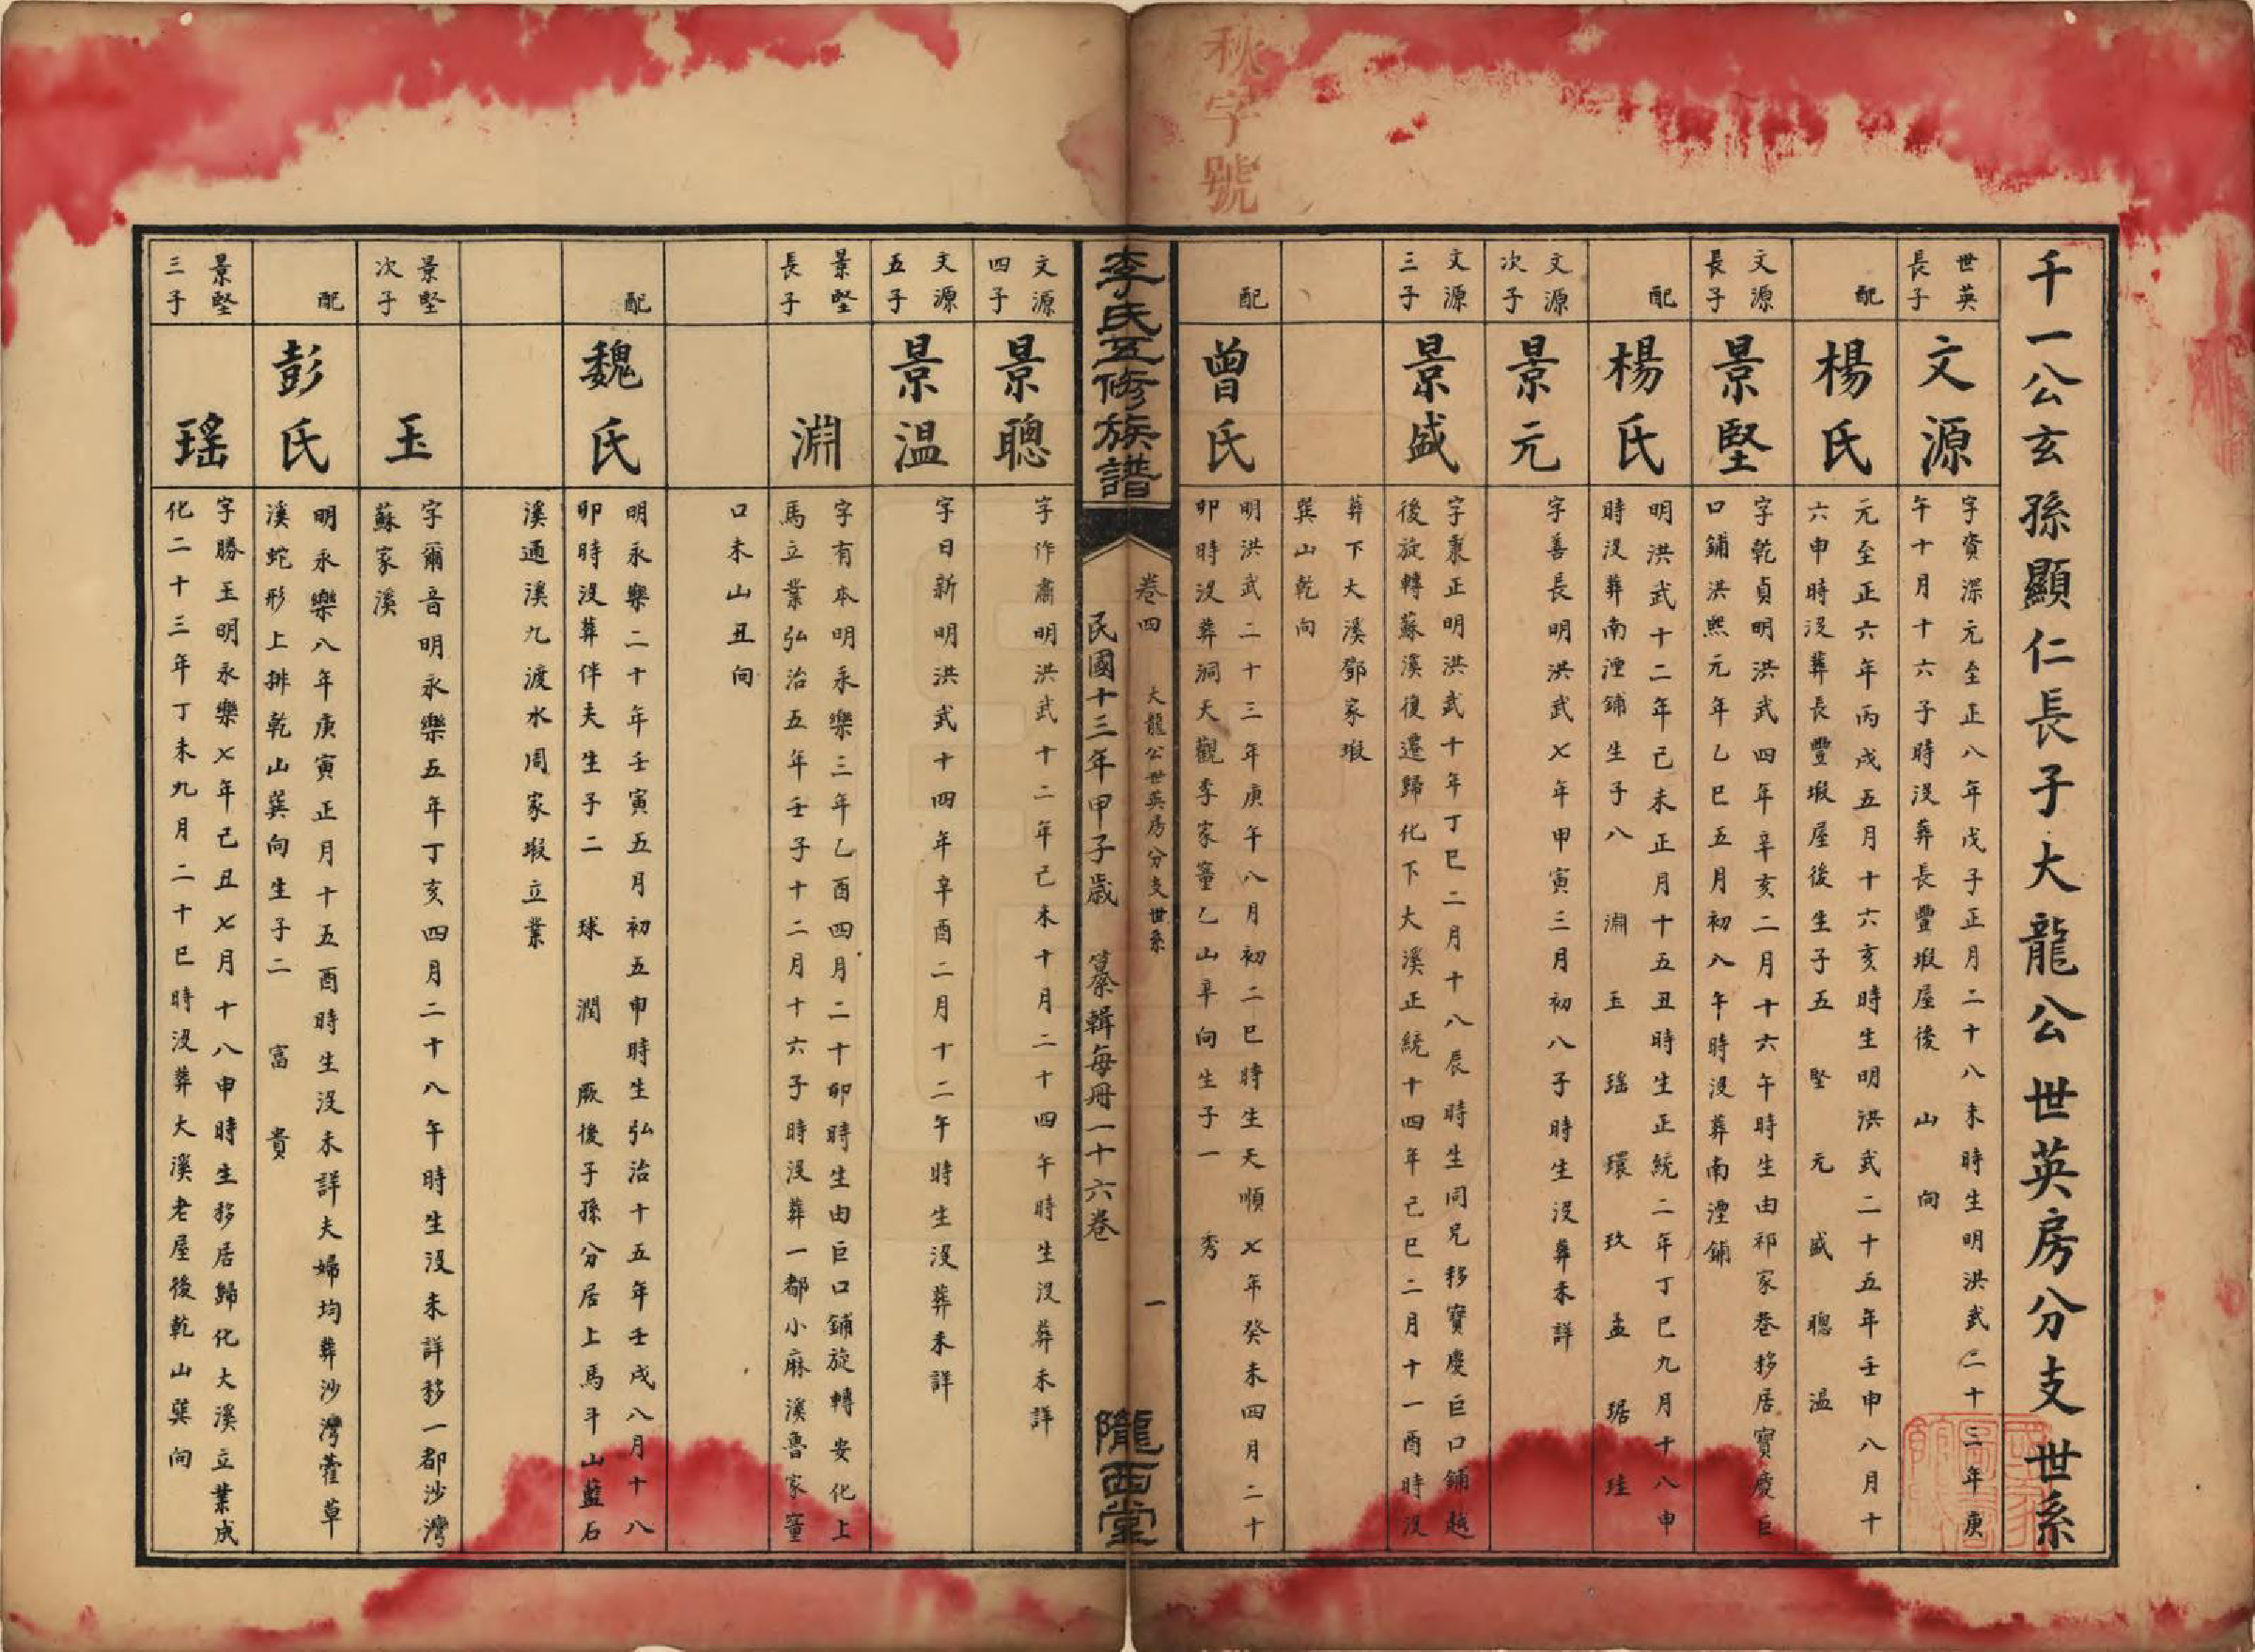 秋字號
千一公玄孫顯仁長子大龍公世英房分支世系
世英
長子
文源
字資深元至正八年戊子正月二十八未時生明洪武二十三年庚
午十月十六子時沒葬長豐塅屋後 山 向
配
楊氏
元至正六年丙戌五月十六亥時生明洪武二十五年壬申八月十
六申時沒葬長豐塅屋後生子五 堅 元 盛 聰 温
文源
長子
景堅
字乾貞明洪武四年辛亥二月十六午時生由祁家巷移居寶慶巨
口鋪洪熙元年乙巳五月初八午時沒葬南湮鋪
配
楊氏
明洪武十二年己未正月十五丑時生正統二年丁巳九月十八申
時沒葬南湮鋪生子八 淵 玉 瑤 環 玫 孟 琚 珪
文源
次子
景元
字善長明洪武七年甲寅三月初八子時生沒葬未詳
文源
三子
景盛
字秉正明洪武十年丁巳二月十八辰時生同兄移寶慶巨口鋪越
後旋轉蘇溪復遷歸化下大溪正統十四年己巳二月十一酉時沒
葬下大溪鄧家塅
巽山乾向
配
曾氏
明洪武二十三年庚午八月初二巳時生天順七年癸未四月二十
卯時沒葬洞天觀李家𡑞乙山辛向生子一 秀
李氏五修族譜
卷四
大龍公世英房分支世系
一
民國十三年甲子歲 纂輯每冊一十六卷
隴西堂
文源
四子
景聰
字作肅明洪武十二年己未十月二十四午時生沒葬未詳
文源
五子
景温
字日新明洪武十四年辛酉二月十二午時生沒葬未詳
景堅
長子
淵
字有本明永樂三年乙酉四月二十卯時生由巨口鋪旋轉安化上
馬立業弘治五年壬子十二月十六子時沒葬一都小麻溪魯家𡑞
口未山丑向
配
魏氏
明永樂二十年壬寅五月初五申時生弘治十五年壬戌八月十八
卯時沒葬伴夫生子二 球 潤 厥後子孫分居上馬斗山藍石
溪通溪九渡水周家塅立業
景堅
次子
玉
字爾音明永樂五年丁亥四月二十八午時生沒未詳移一都沙灣
蘇家溪
配
彭氏
明永樂八年庚寅正月十五酉時生沒未詳夫婦均葬沙灣藿草
溪蛇形上排乾山巽向生子二 富 貴
景堅
三子
瑤
字勝玉明永樂七年己丑七月十八申時生移居歸化大溪立業成
化二十三年丁未九月二十巳時沒葬大溪老屋後乾山巽向